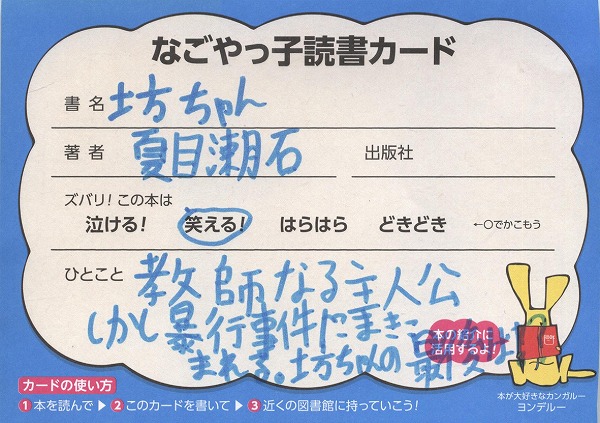 なごやっ子読書カード
書名 坊ちゃん
著者 夏目漱石 出版社
ズバリ!この本は
泣ける! 笑える! はらはら どきどき ←○でかこもう
ひとこと 教師なる主人公
しかし暴行事件にまきこ
まれる。坊ちゃんの最後は
本の紹介に
活用するよ!
カードの使い方
1 本を読んで ▶ 2 このカードを書いて ▶ 3 近くの図書館に持っていこう!
本が大好きなカンガルー
ヨンデルー